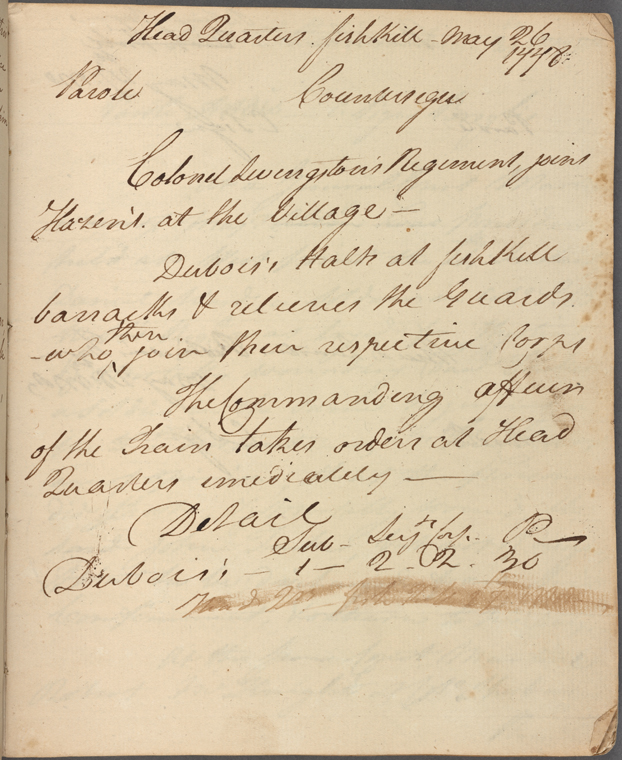 Head Quarters fishKill - May 26
1778:
Parole Countersign
Colonel Livingston's Regiment, joins
Hazen's. at the Village -
Dubois's Halts at fishKill
barracks & relieves the Guards.
then
- who join their respective Corps
The Commanding officer
of the Train takes orders at Head
Quarters imediately -
Detail
Sub - Serjts Corp. - P
Dubois's - 1 - 2 - 2 - 30